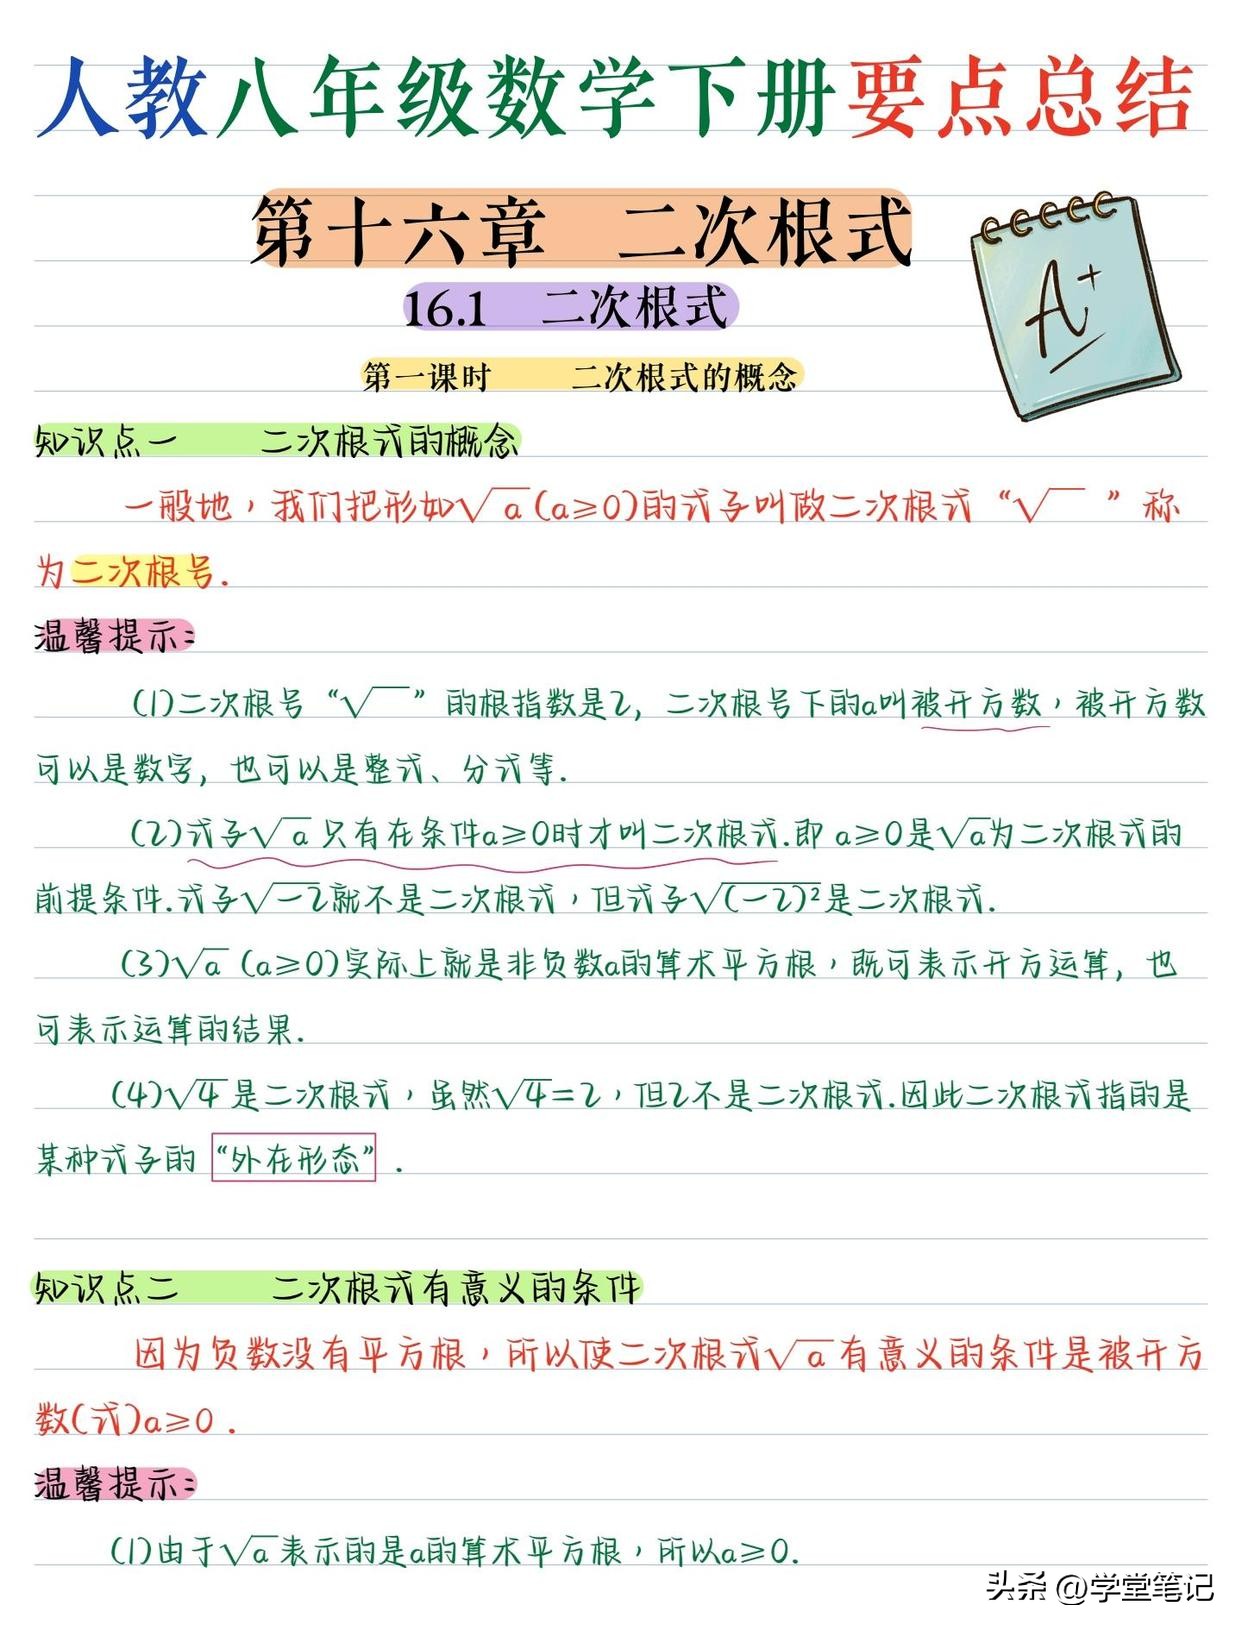 人教八年级数学下册要点总结
第十六章 二次根式
16.1 二次根式
A+
第一课时 二次根式的概念
知识点一 二次根式的概念
一般地，我们把形如√a(a≥0)的式子叫做二次根式“√ ”称
为二次根号.
温馨提示:
(1)二次根号“√ ”的根指数是2, 二次根号下的a叫被开方数，被开方数
可以是数字, 也可以是整式、分式等.
(2)式子√a只有在条件a≥0时才叫二次根式.即 a≥0是√a为二次根式的
前提条件.式子√-2就不是二次根式，但式子√(-2)²是二次根式.
(3)√a (a≥0)实际上就是非负数a的算术平方根，既可表示开方运算, 也
可表示运算的结果.
(4)√4是二次根式，虽然√4=2，但2不是二次根式.因此二次根式指的是
某种式子的“外在形态”.
知识点二 二次根式有意义的条件
因为负数没有平方根，所以使二次根式√a有意义的条件是被开方
数(式)a≥0.
温馨提示:
(1)由于√a表示的是a的算术平方根，所以a≥0.
头条 @学堂笔记